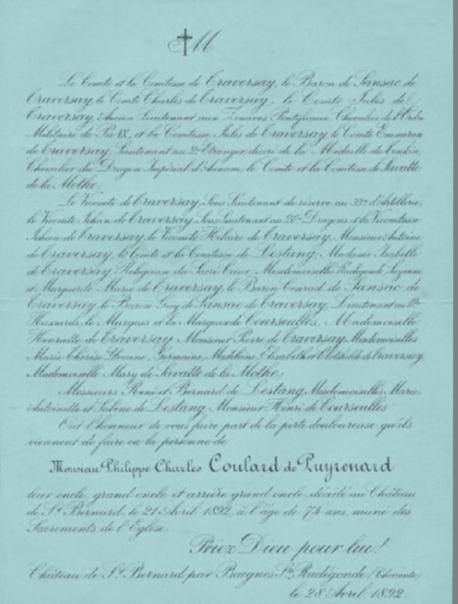 M
Le Comte et la Comtesse de Traversay, le Baron de Sansac de
Traversay, le Comte Charles de Traversay, le Comte Jules de
Traversay, Ancien Lieutenant aux Zouaves Pontificaux, Chevalier de l'Ordre
Militaire de Pie IX, et la Comtesse Jules de Traversay, le Comte Emmeran
de Traversay, Lieutenant au 2e Etranger, décoré de la Médaille du Tonkin,
Chevalier du Dragon Impérial d'Annam, le Comte et la Comtesse de Savatte
de la Mothe;
Le Vicomte de Traversay, Sous Lieutenant de réserve au 33e d'Artillerie,
le Vicomte Jehan de Traversay, Sous Lieutenant au 20e Dragons et la Vicomtesse
Jehan de Traversay, le Vicomte Hilaire de Traversay, Monsieur Antoine
de Traversay, le Comte et la Comtesse de Lestang, Madame Isabelle
de Traversay, Religieuse du Sacré Cœur, Mesdemoiselles Radegonde,
et Marguerite Marie de Traversay, le Baron Conrad de Sansac de
Traversay, le Baron Guy de Sansac de Traversay, Lieutenant au
Hussards, le Marquis et la Marquise de Courseulles, Mademoiselle
Henriette de Traversay, Monsieur Pierre de Traversay, Mesdemoiselles
Marie Thérèse, Germaine, Madeleine, Elisabeth et Clotilde de Traversay,
Mademoiselle Mary de Savatte de la Mothe;
Messieurs René et Bernard de Lestang, Mesdemoiselles Marie-
Antoinette et de Lestang, Monsieur Henri de Courseulles
Ont l'honneur de vous faire part de la perte douloureuse qu'ils
viennent de faire en la personne de
Monsieur Philippe Charles Coulard de Puyrenard
leur oncle, grand oncle et arrière grand oncle, décédé au Château
de St Bernard, le 21 Avril 1892, à l'âge de 74 ans, muni des
Sacrements de l'Eglise.
Priez Dieu pour lui!
Château de St Bernard, par Baignes Ste Radégonde (Charente)
le 28 Avril 1892.